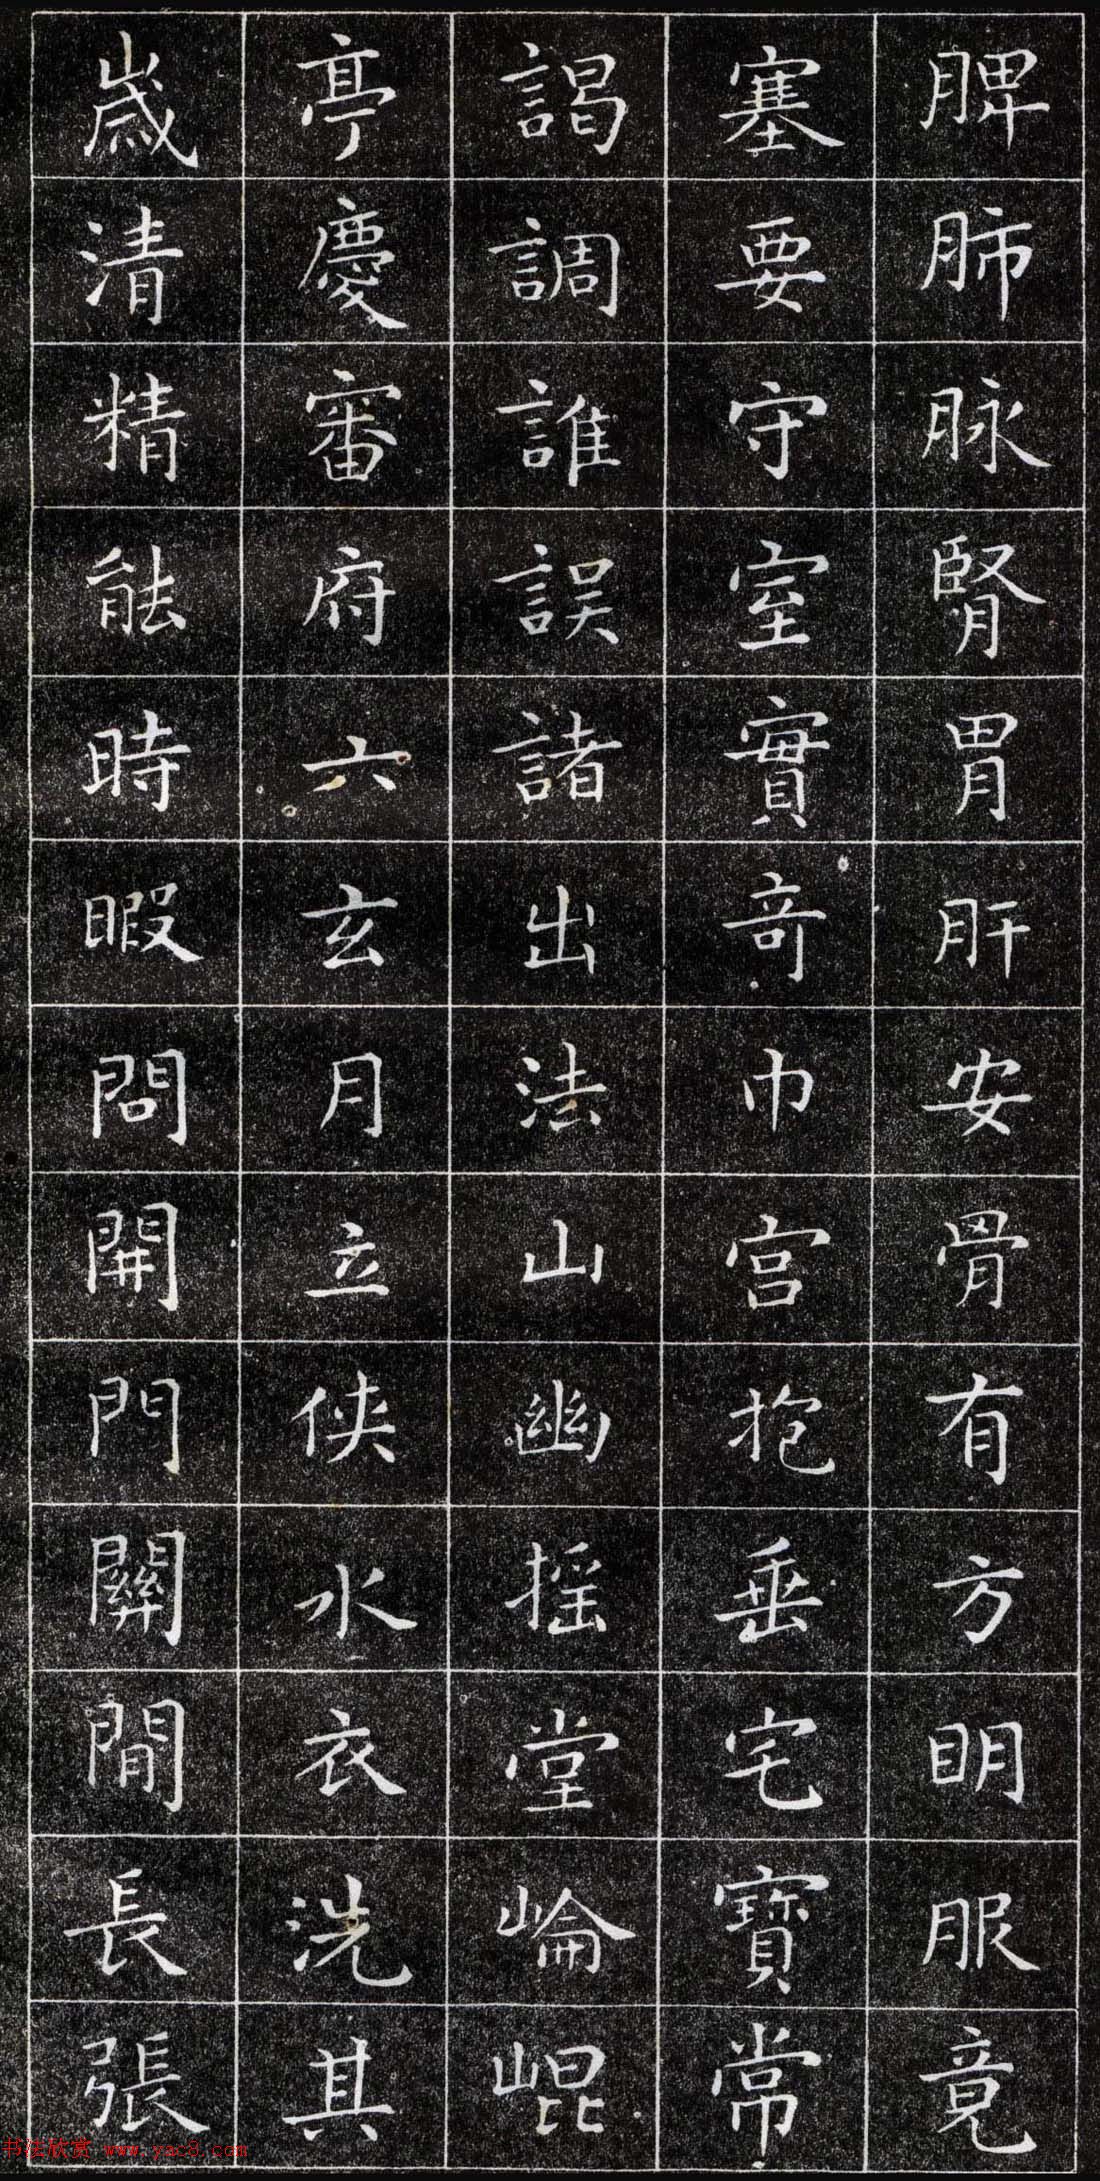 脾肺脉腎胃肝安骨有方明服竟
塞要守室實奇巾宫抱垂宅寶常
謁調誰誤諸出法山幽摇堂崘崐
亭慶審府六玄月立俠水衣洗其
歲清精能時暇問開門關間長張
书法欣赏 www.yac8.com